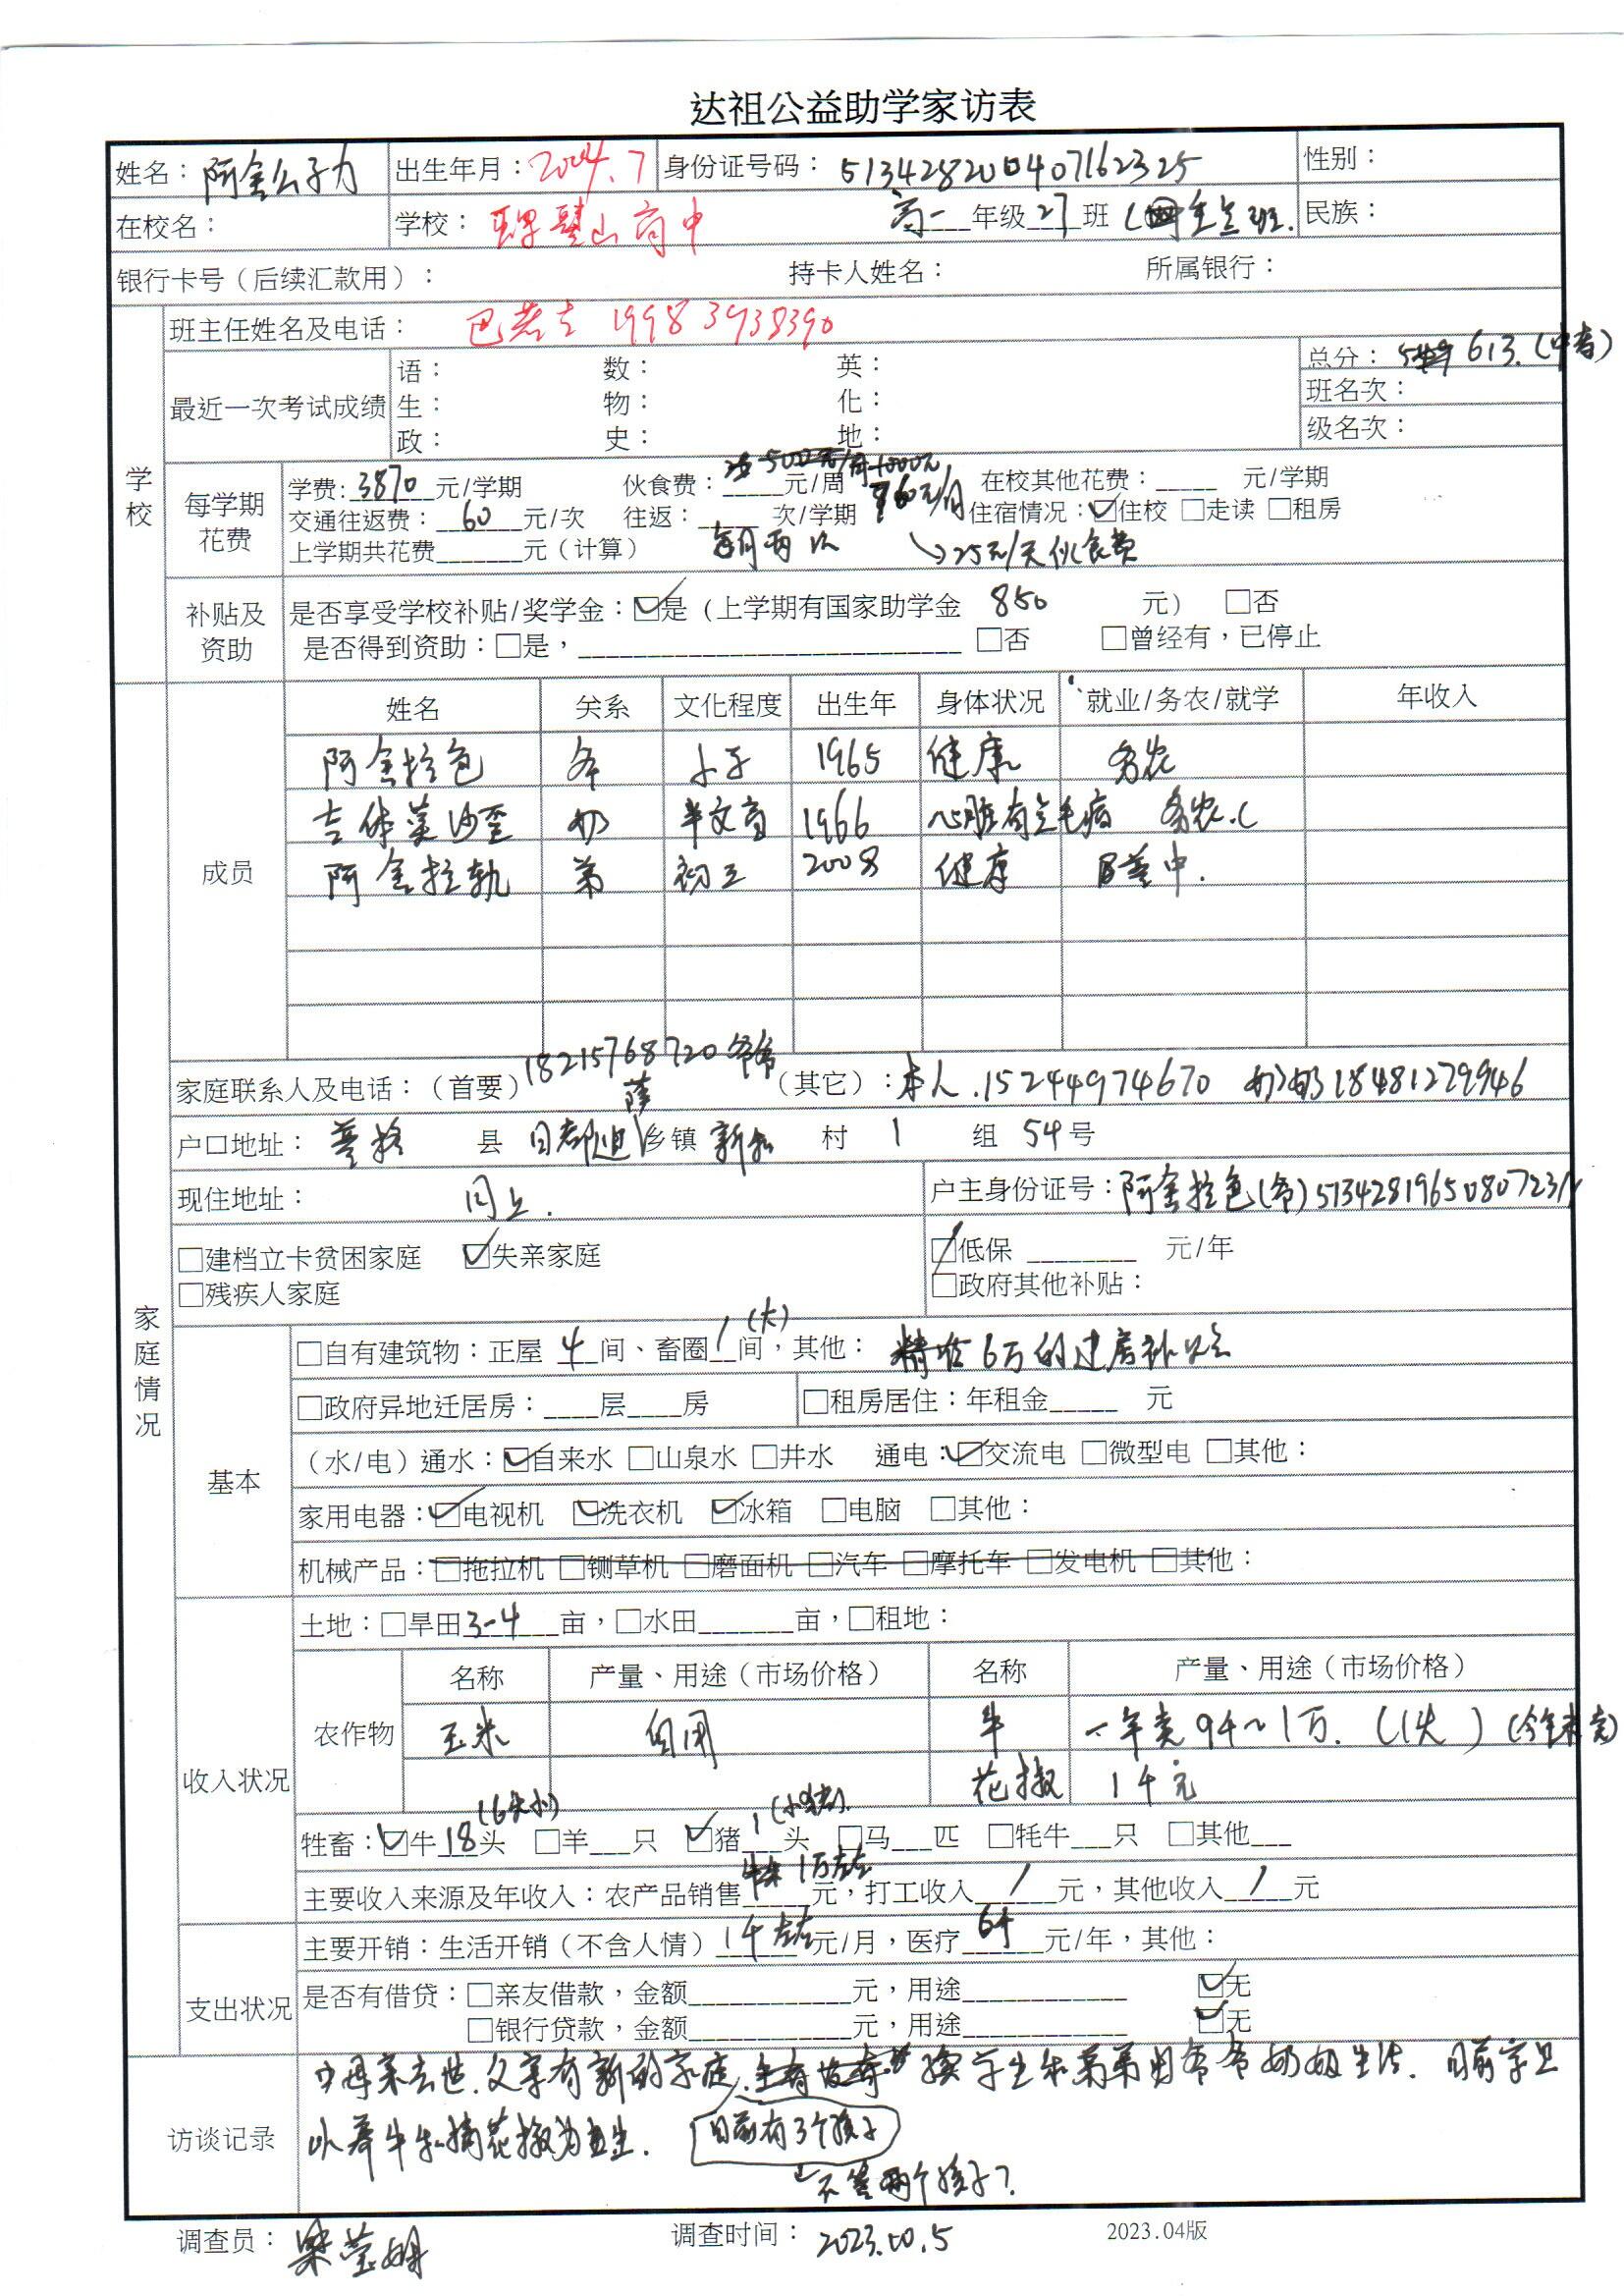 达祖公益助学家访表
姓名： 阿舍公子力 出生年月：2004.7 身份证号码： 513428200407162325 性别：
在校名： 学校： 山高中 高一年级27班 重点班. 民族：
银行卡号（后续汇款用）： 持卡人姓名： 所属银行：
班主任姓名及电话： 巴老 19983938390
学校
最近一次考试成绩
语： 数： 英： 总分： 613.（中考）
生： 物： 化： 班名次：
政： 史： 地： 级名次：
每学期花费
学费：3870元/学期 伙食费：_____元/周 500元/月 1000元 在校其他花费：_____ 元/学期
交通往返费：60元/次 往返：_____次/学期 元/月 住宿情况：☑住校 □走读 □租房
上学期共花费______元（计算） 每月两次 ↘25元/天伙食费
补贴及资助
是否享受学校补贴/奖学金：☑是（上学期有国家助学金 850 元） □否
是否得到资助：□是，____________________________ □否 □曾经有，已停止
成员
姓名 关系 文化程度 出生年 身体状况 就业/务农/就学 年收入
阿舍拉色 爷 小学 1965 健康 务农
吉 莫沙 奶 半文盲 1966 心脏有点毛病 务农.
阿舍拉轨 弟 初三 2008 健康 中.
家庭情况
家庭联系人及电话：（首要）18215768720 爷爷 （其它）：本人.15244974670 奶奶18481279946
户口地址： 普格 县 日都迪萨 乡镇 新 村 1 组 54号
现住地址： 同上. 户主身份证号：阿舍拉色(爷)513428196508072311
□建档立卡贫困家庭 ☑失亲家庭 ☑低保 ________ 元/年
□残疾人家庭 □政府其他补贴：
基本
□自有建筑物：正屋 4 间、畜圈 1（大）间，其他： 精准6万的建房补贴
□政府异地迁居房：____层____房 □租房居住：年租金_____ 元
（水/电）通水：☑自来水 □山泉水 □井水 通电：☑交流电 □微型电 □其他：
家用电器：☑电视机 ☑洗衣机 ☑冰箱 □电脑 □其他：
机械产品：□拖拉机 □铡草机 □磨面机 □汽车 □摩托车 □发电机 □其他：
收入状况
土地：□旱田3-4亩，□水田_______亩，□租地：
农作物
名称 产量、用途（市场价格） 名称 产量、用途（市场价格）
玉米 自用 牛 一年卖9千~1万.（1头）（今年未卖）
花椒 1千元
牲畜：☑牛 18（6头小）头 □羊___只 ☑猪 1（小猪）头 □马___匹 □牦牛___只 □其他___
主要收入来源及年收入：农产品销售 1万左右元，打工收入 / 元，其他收入 / 元
支出状况
主要开销：生活开销（不含人情）1千左右元/月，医疗 6千 元/年，其他：
是否有借贷：□亲友借款，金额____________元，用途____________ ☑无
□银行贷款，金额____________元，用途____________ ☑无
访谈记录
母亲去世.父亲有新的家庭. 学生和弟弟由爷爷奶奶生活. 目前
以养牛和摘花椒为 生. 目前有3个孩子
不管两个孩子？
调查员： 梁莹 调查时间： 2023.10.5 2023.04版